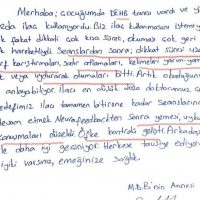 Merhaba; çocuğumda DEHB tanısı vardı ve y
zda ilaç kullanıyordu. Biz ilaç kullanmasını istemiy
k fakat dikkati çok kısa sürek, okuması çok geri
k hareketliydi. Seanslardan sonra, dikkat süresi uza
rf karıştırmaları, satır atlamaları, kelimeleri yarım yam
k veya uydurarak okumaları bitti. Artık okuduğunu
anlayabiliyor. İlacı en düşük doza doktorumuz
edefimiz ilacı tamamen bitirene kadar Seanslarına
evam etmek Neurofeedbackten sonra yemesi, uyku
onuşmaları düzeldi. Öfke kontrolü gelişti. Arkadaş
le daha iyi geçiniyor. Herkese tavsiye ediyor
iyiki varsınız, emeğinize sağlık.
M.D.B'nin Annesi